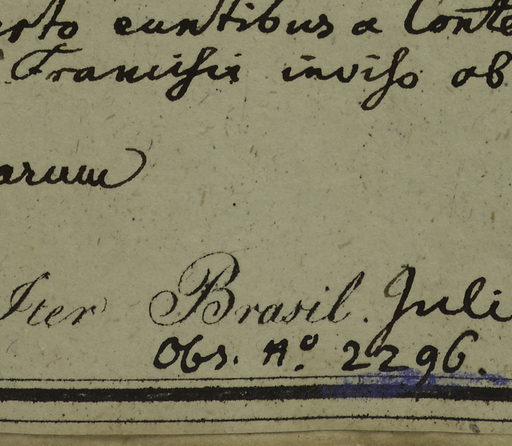 erto euntibus a Conte
Francisci inviso ab
arum
Iter Brasil. Juli
Obs. No. 2296.